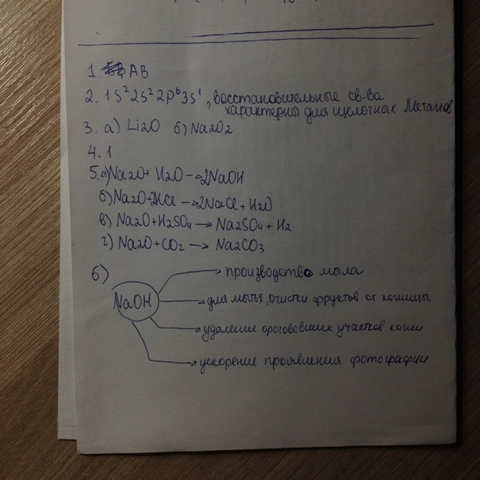 1. АВ
2. 1S² 2S² 2P⁶ 3S¹, восстановительные св-ва
характерны для щелочных металлов
3. а) Li2O б) Na2O2
4. 1
5. а) Na2O + H2O → 2NaOH
б) Na2O + 2HCl → 2NaCl + H2O
в) Na2O + H2SO4 → Na2SO4 + H2
г) Na2O + CO2 → Na2CO3
6)
NaOH
→ производство мыла
→ для мытья, очистки фруктов от кожицы
→ удаление ороговевших участков кожи
→ ускорение проявления фотографии